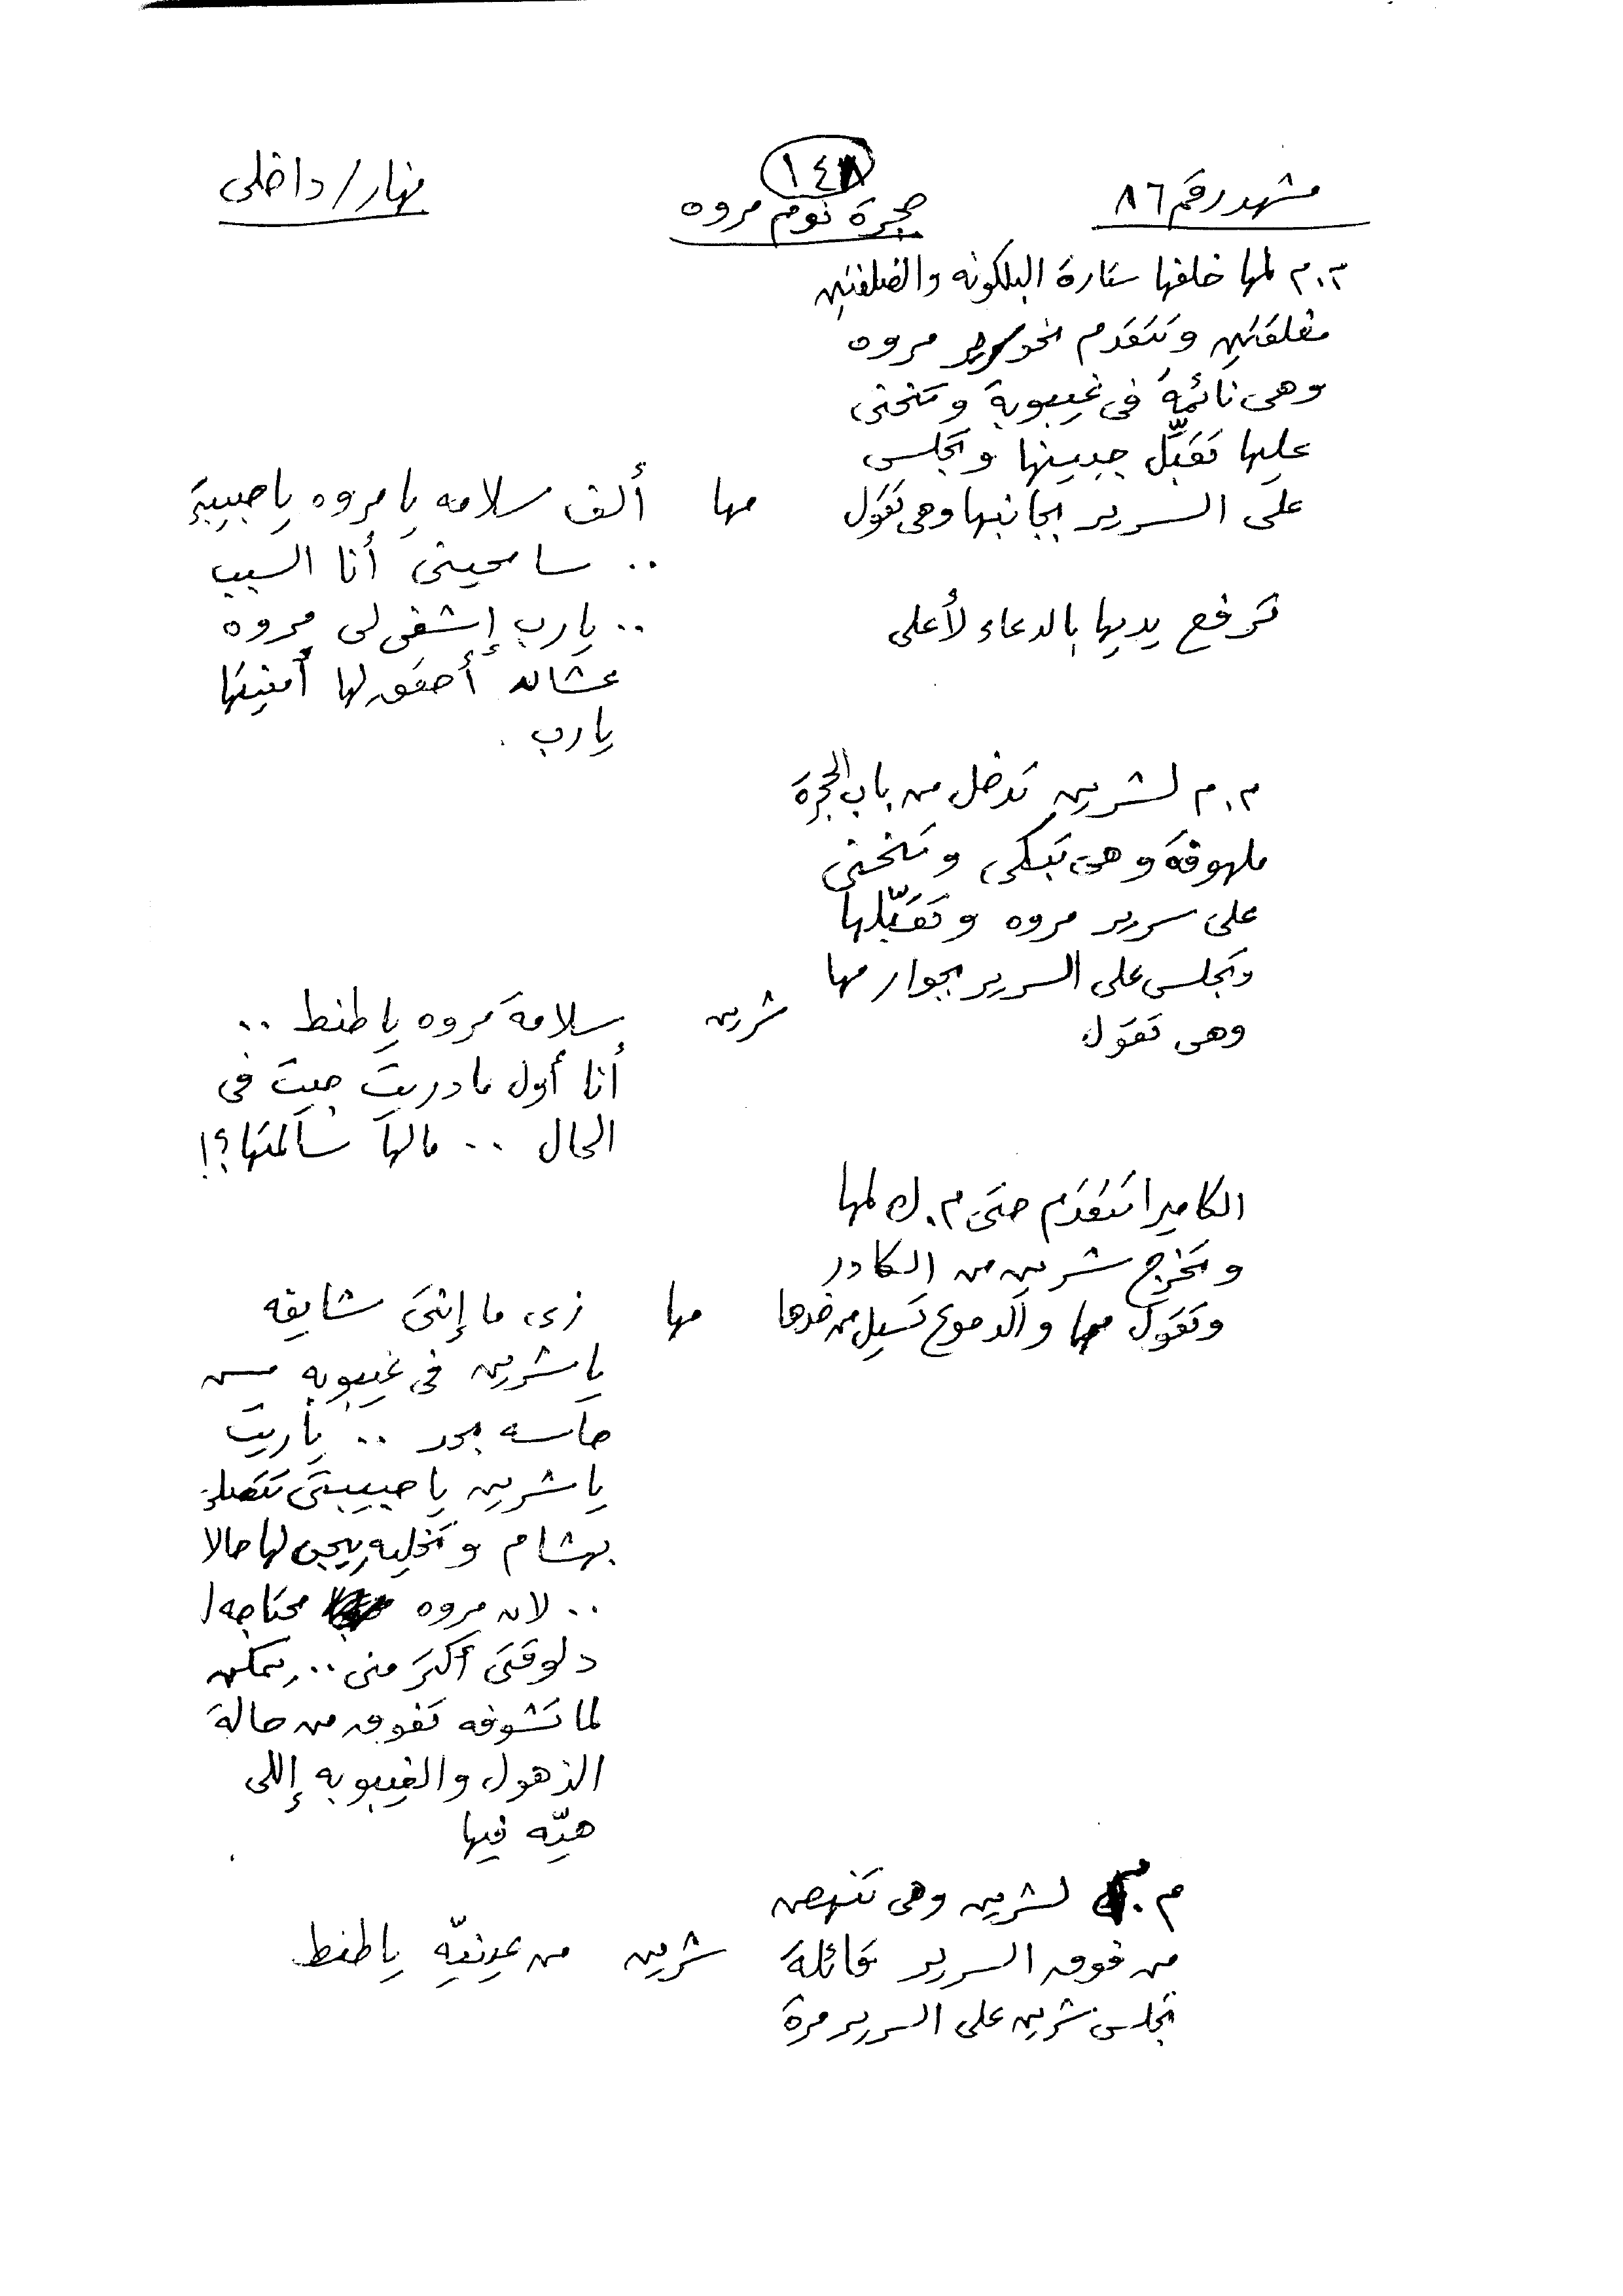 ١٤٨
مشهد رقم ٨٦ حجرة نوم مروه نهار/داخلى
م.م لمها خلفها ستارة البلكونه والضلفتين
مغلقتين وتتقدم نحو سرير مروه
وهى نائمة فى غيبوبة وتنحنى
عليها تقبِّل جبينها وتجلس
على السرير بجانبها وهى تقول مها ألف سلامه يا مروه يا حبيبتى
.. سامحينى أنا السبب
ترفع يديها بالدعاء لأعلى .. يارب إشفى لى مروه
عشان أحقق لها أمنيتها
يارب .
م.م لشرين تدخل من باب الحجرة
ملهوفة وهى تبكى وتنحنى
على سرير مروه وتقبّلها
وتجلس على السرير بجوار مها
وهى تقول شرين سلامة مروه يا طنط ..
أنا أول ما دريت جيت فى
الحال .. مالها سالمتها؟!
الكاميرا تتقدم حتى م.ك لمها
وتخرج شرين من الكادر
وتقول مها والدموع تسيل من خدها مها زى ما إنتى شايفه
يا شرين فى غيبوبه مس
حاسه بحد .. ياريت
يا شرين يا حبيبتى تتصلى
بهشام وتخليه ييجى لها حالا
.. لان مروه محتاجه ا
دلوقتى أكتر منى .. يمكن
لما تشوفه تفوق من حالة
الذهول والغيبوبه إللى
هيّه فيها
م. لشرين وهى تنهض
من فوق السرير قائلة شرين من عينيّه يا طنط
تجلس شرين على السرير مرة